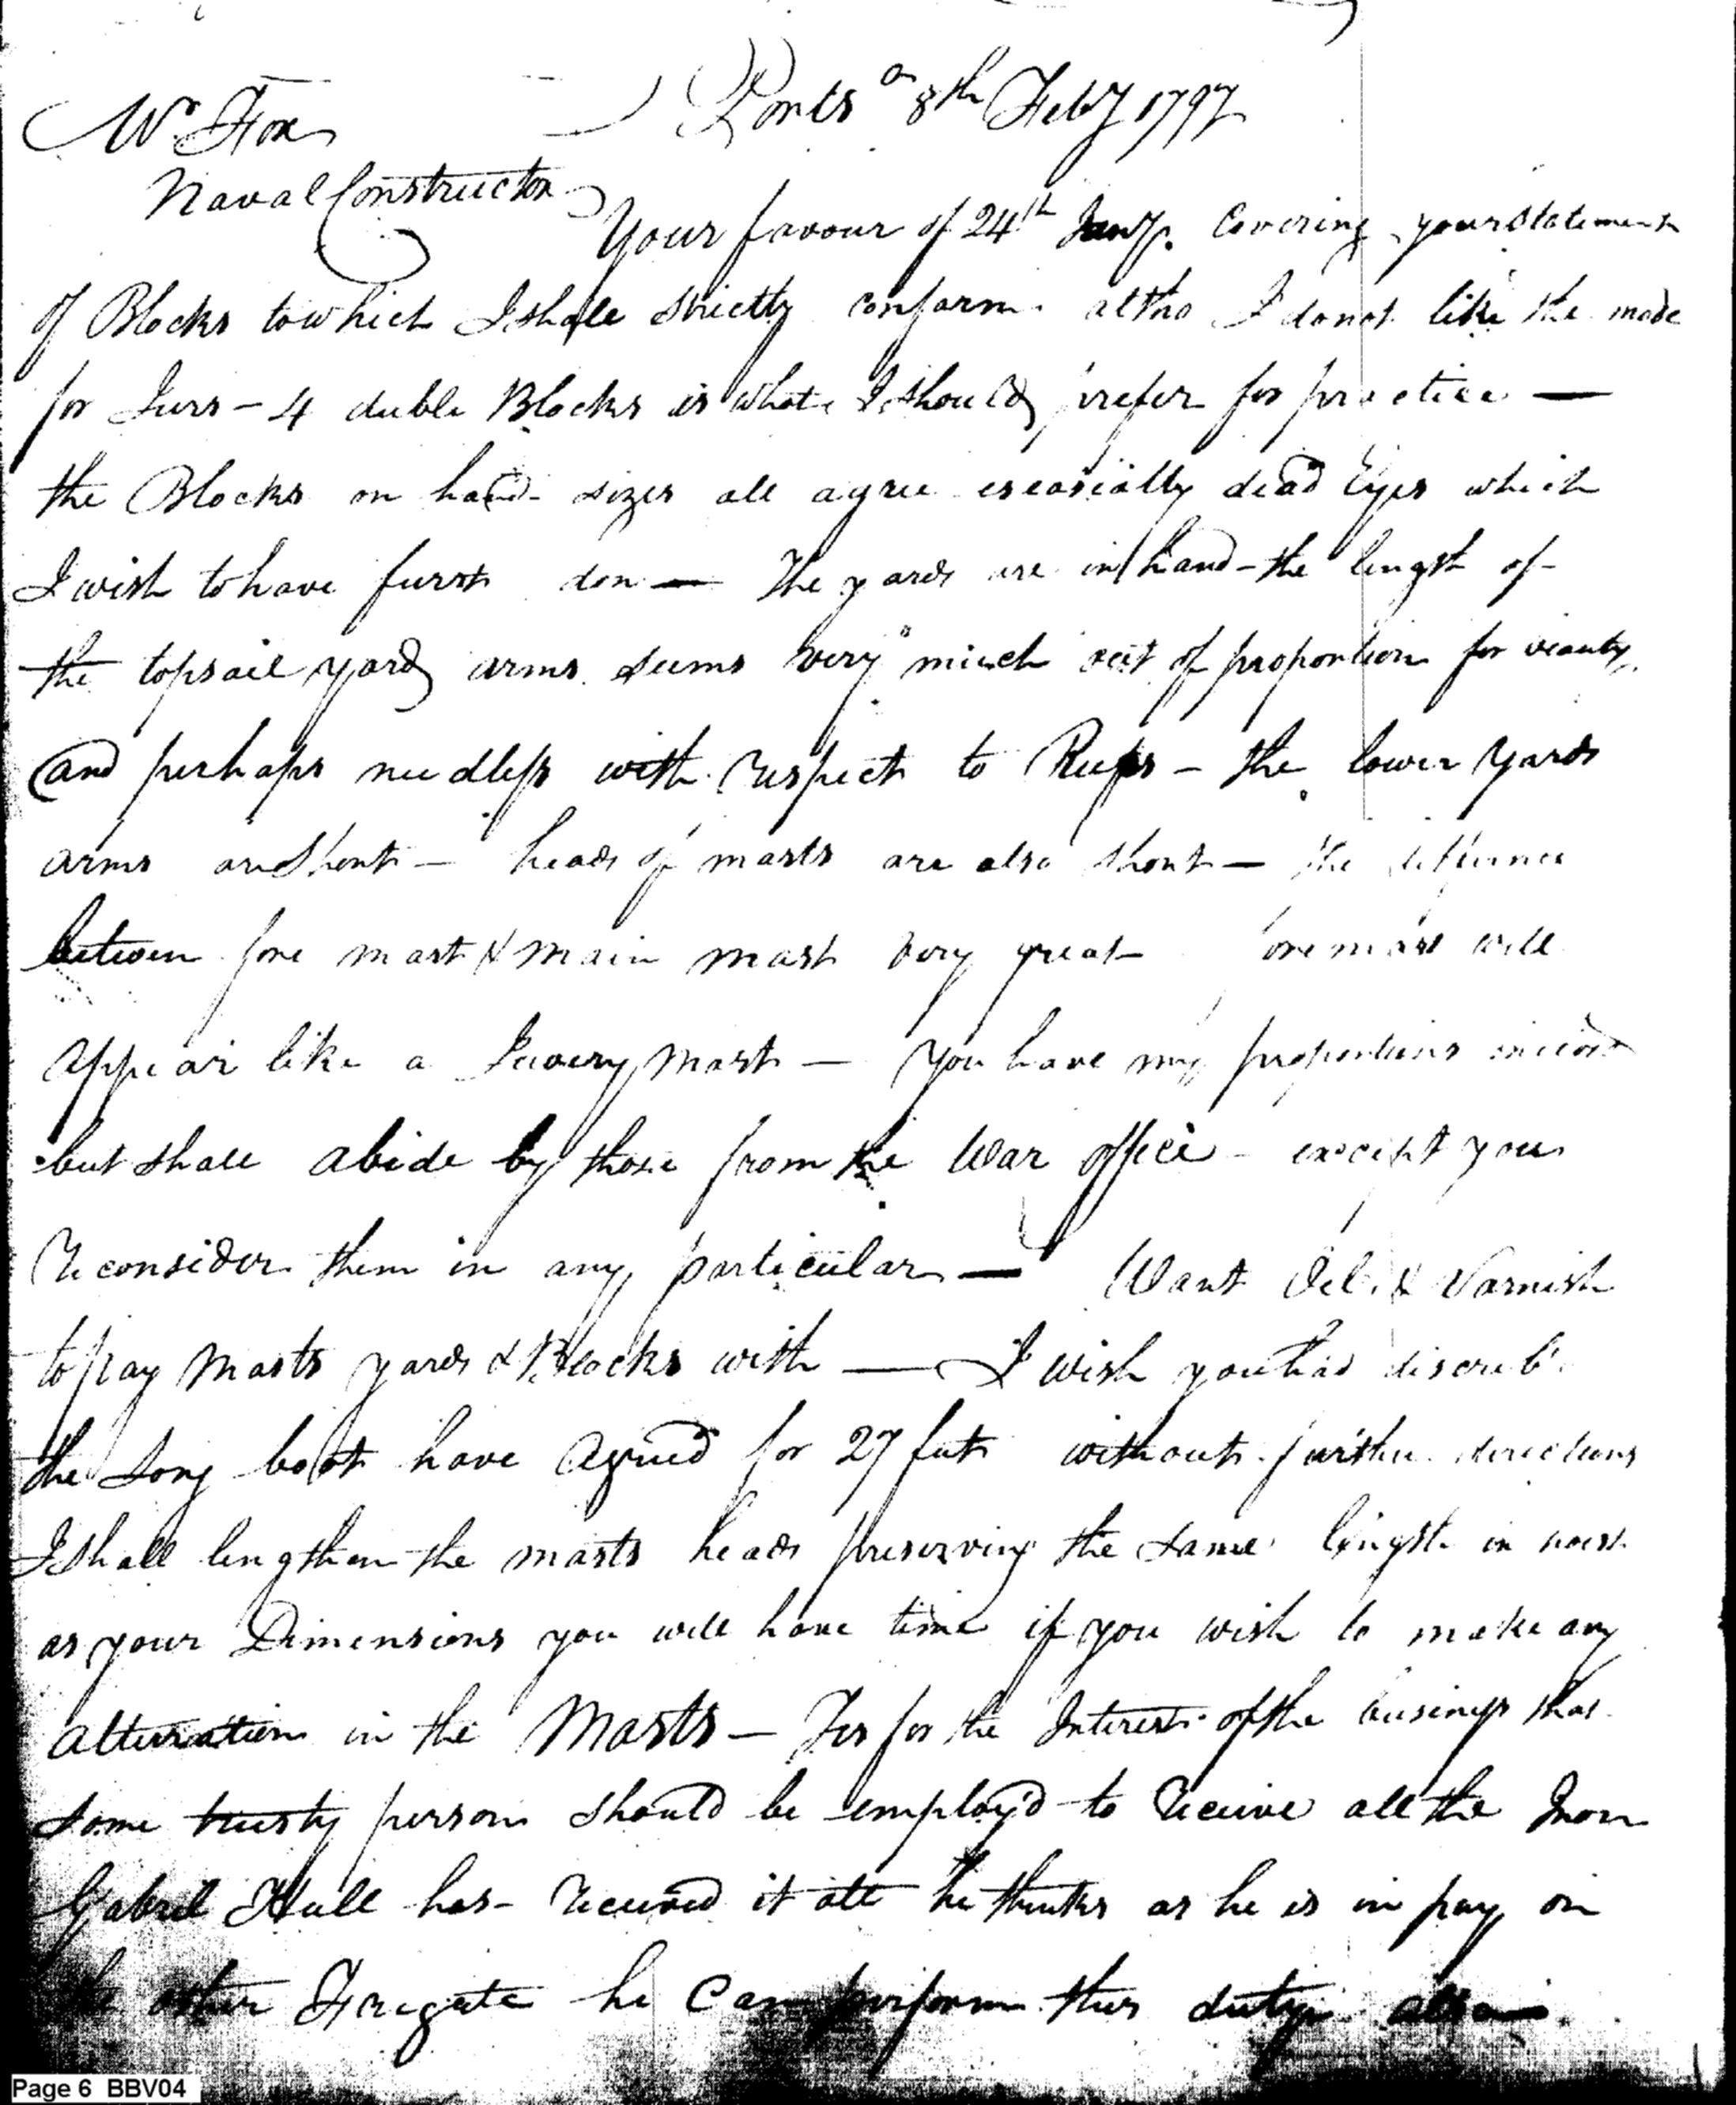 Ports° 8th Feby 1797
Mr Fox
Naval Constructor
Your favour of 24th Jany. Covering your statement
of Blocks to which I shall strictly conform altho I do not like the mode
for Jurs - 4 duble Blocks is what I should prefer for practice —
the Blocks on hand sizes all agree eseasially dead Eyes which
I wish to have furst don — The yards are in hand - the length of
the topsail yard arms seems very much out of proportion for beauty
and perhaps needless with respect to Reefs - the lower yards
arms are Short - heads of masts are also Short - the
between fore mast & main mast very great fore mast will
appear like a mast - you have my proportions
but shall abide by those from the War office except you
reconsider them in any particular — Want Oel & Varnish
to pay Masts yards & Blocks with — I wish you had discrib'
the Long boat have agreed for 27 feet without further directions
I shall lengthen the masts heads preserving the same length in hoist
as your Dimensions you will have time if you wish to make any
alterration in the Masts - Tis for the Interest of the business that
some trusty person should be employ'd to receive all the Iron
Gabriel Hull has received it all he thinks as he is in pay on
the other Fregate he can perform this duty also.
Page 6 BBV04